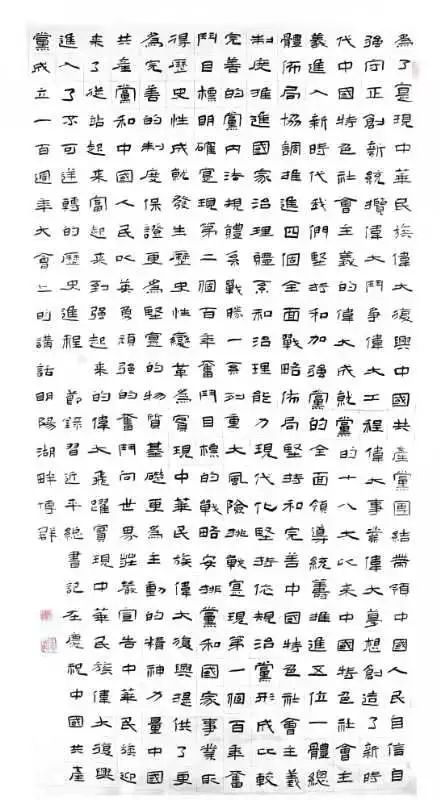 為了寔現中華民族偉大復興中國共產黨團結帶領中國人民自信自
强守正創新統攬偉大鬥爭偉大工程偉大事業偉大夢想創造了新時
代中國特色社會主義的偉大成就黨的十八大以來中國特色社會主
義進入新時代我們堅持和加强黨的全面領導統籌推進五位一體總
體佈局協調推進四個全面戰略佈局堅持和完善中國特色社會主義
制度推進國家治理體系和治理能力現代化堅持依規治黨形成比較
完善的黨内法規體系戰勝一系列重大風險挑戰寔現第一個百年奮
鬥目標明確寔現第二個百年奮鬥目標的戰略安排黨和國家事業取
得歷史性成就發生歷史性變革為實現中華民族偉大復興提供了更
為完善的制度保證更為堅實的物質基礎更為主動的精神力量中國
共產黨和中國人民以英勇頑强的奮鬥向世界莊嚴宣告中華民族迎
來了從站起來富起來到强起來的偉大飛躍實現中華民族偉大復興
進入了不可逆轉的歷史進程 節錄習近平總書記在慶祝中國共產
黨成立一百週年大會上的講話明陽湖畔傅群